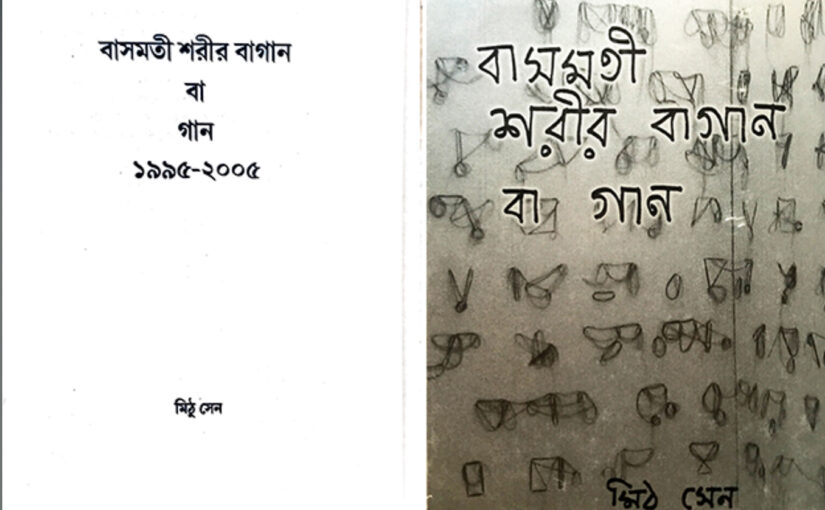 বাসমতী শরীর বাগান
বা
গান
১৯৯৫-২০০৫
মিঠু সেন
বাসমতী
শরীর বাগান
বা গান
মিঠু সেন